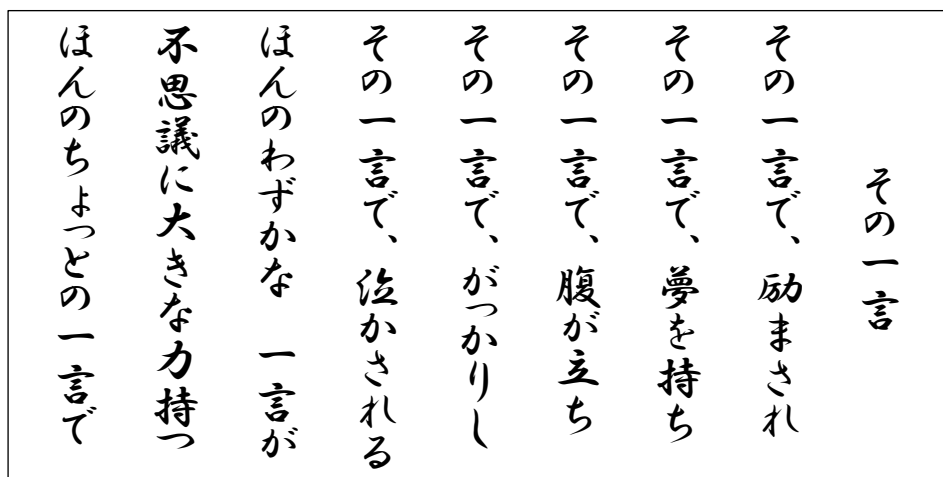 その一言
その一言で、励まされ
その一言で、夢を持ち
その一言で、腹が立ち
その一言で、がっかりし
その一言で、泣かされる
ほんのわずかな　一言が
不思議に大きな力持つ
ほんのちょっとの一言で